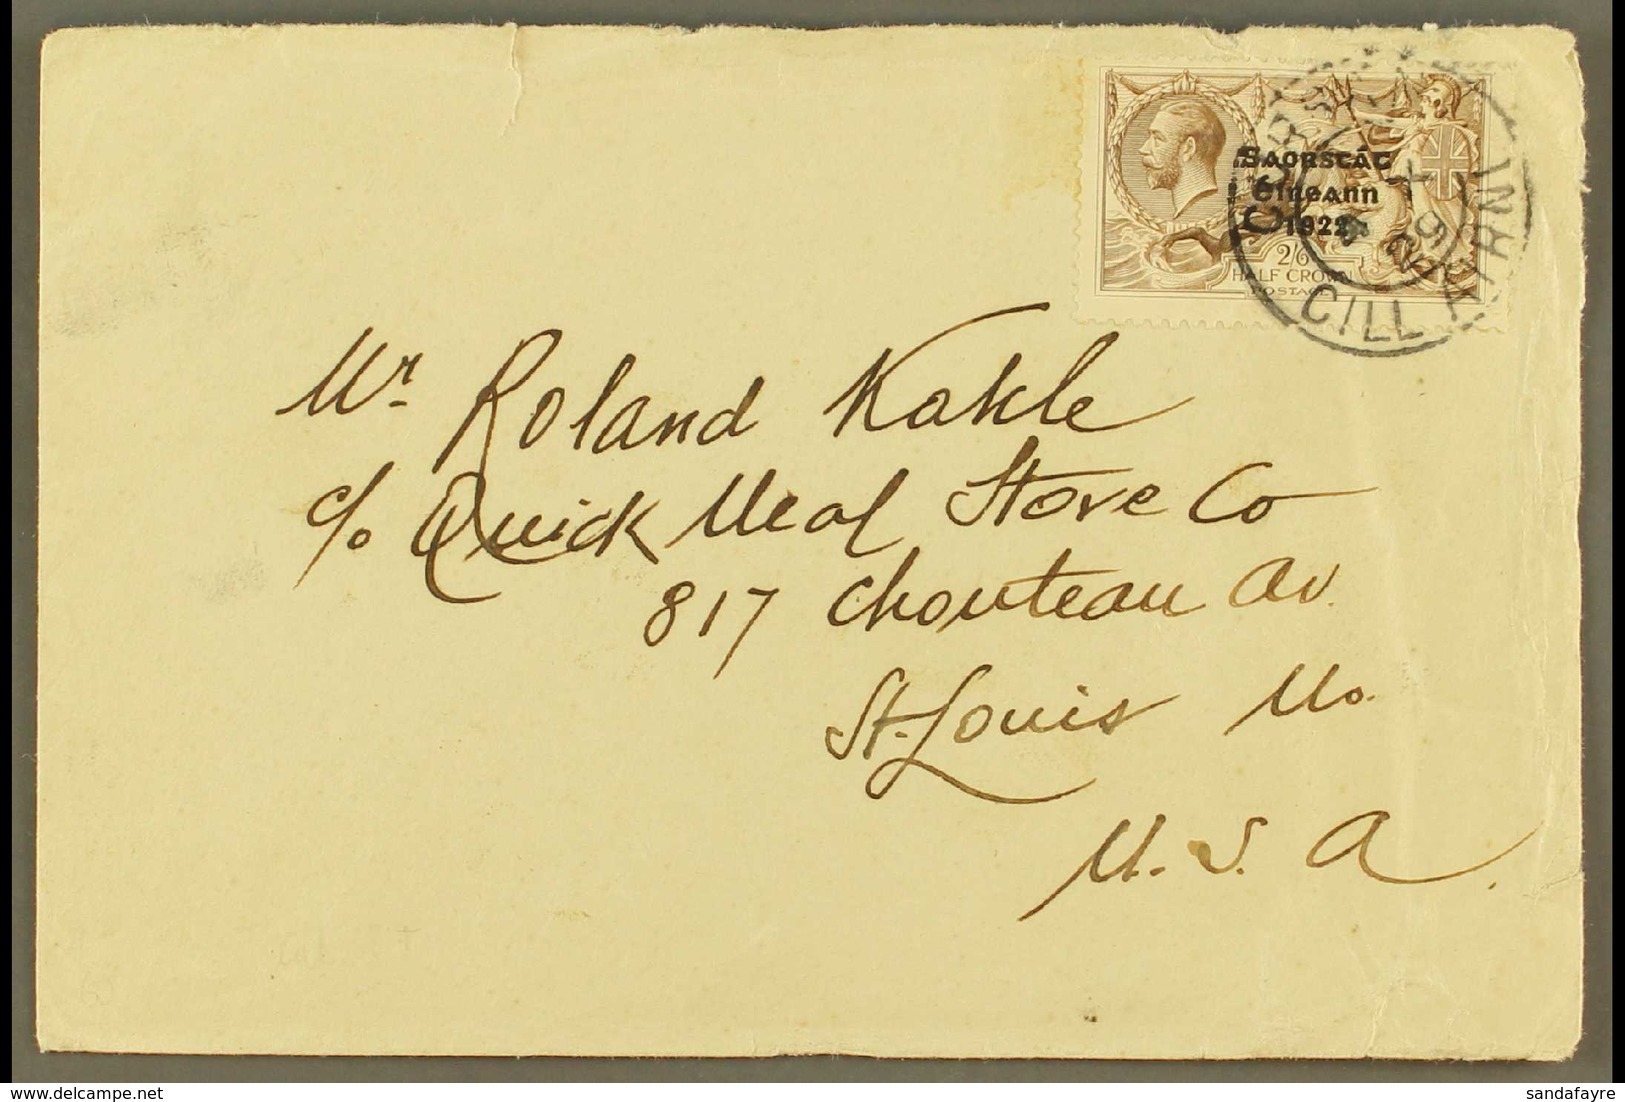 Saorstát
Éireann
1922
2/6
HALF CROWN
POSTAGE
CILL AIRNI
Mr. Roland Kahle
c/o Quick Meal Stove Co
817 Chouteau Av.
St. Louis Mo.
U. S. A.
delcampe.net
sandafayre